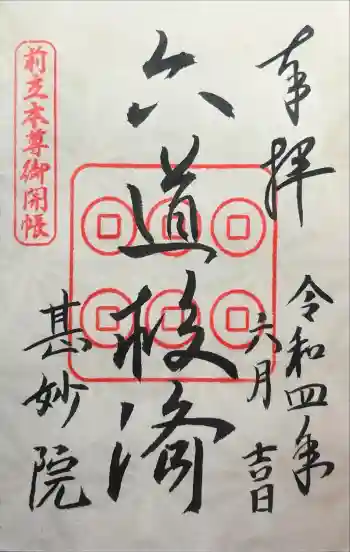 奉拝
令和四年
六月
吉日
六道救済
前立本尊御開帳
甚妙院